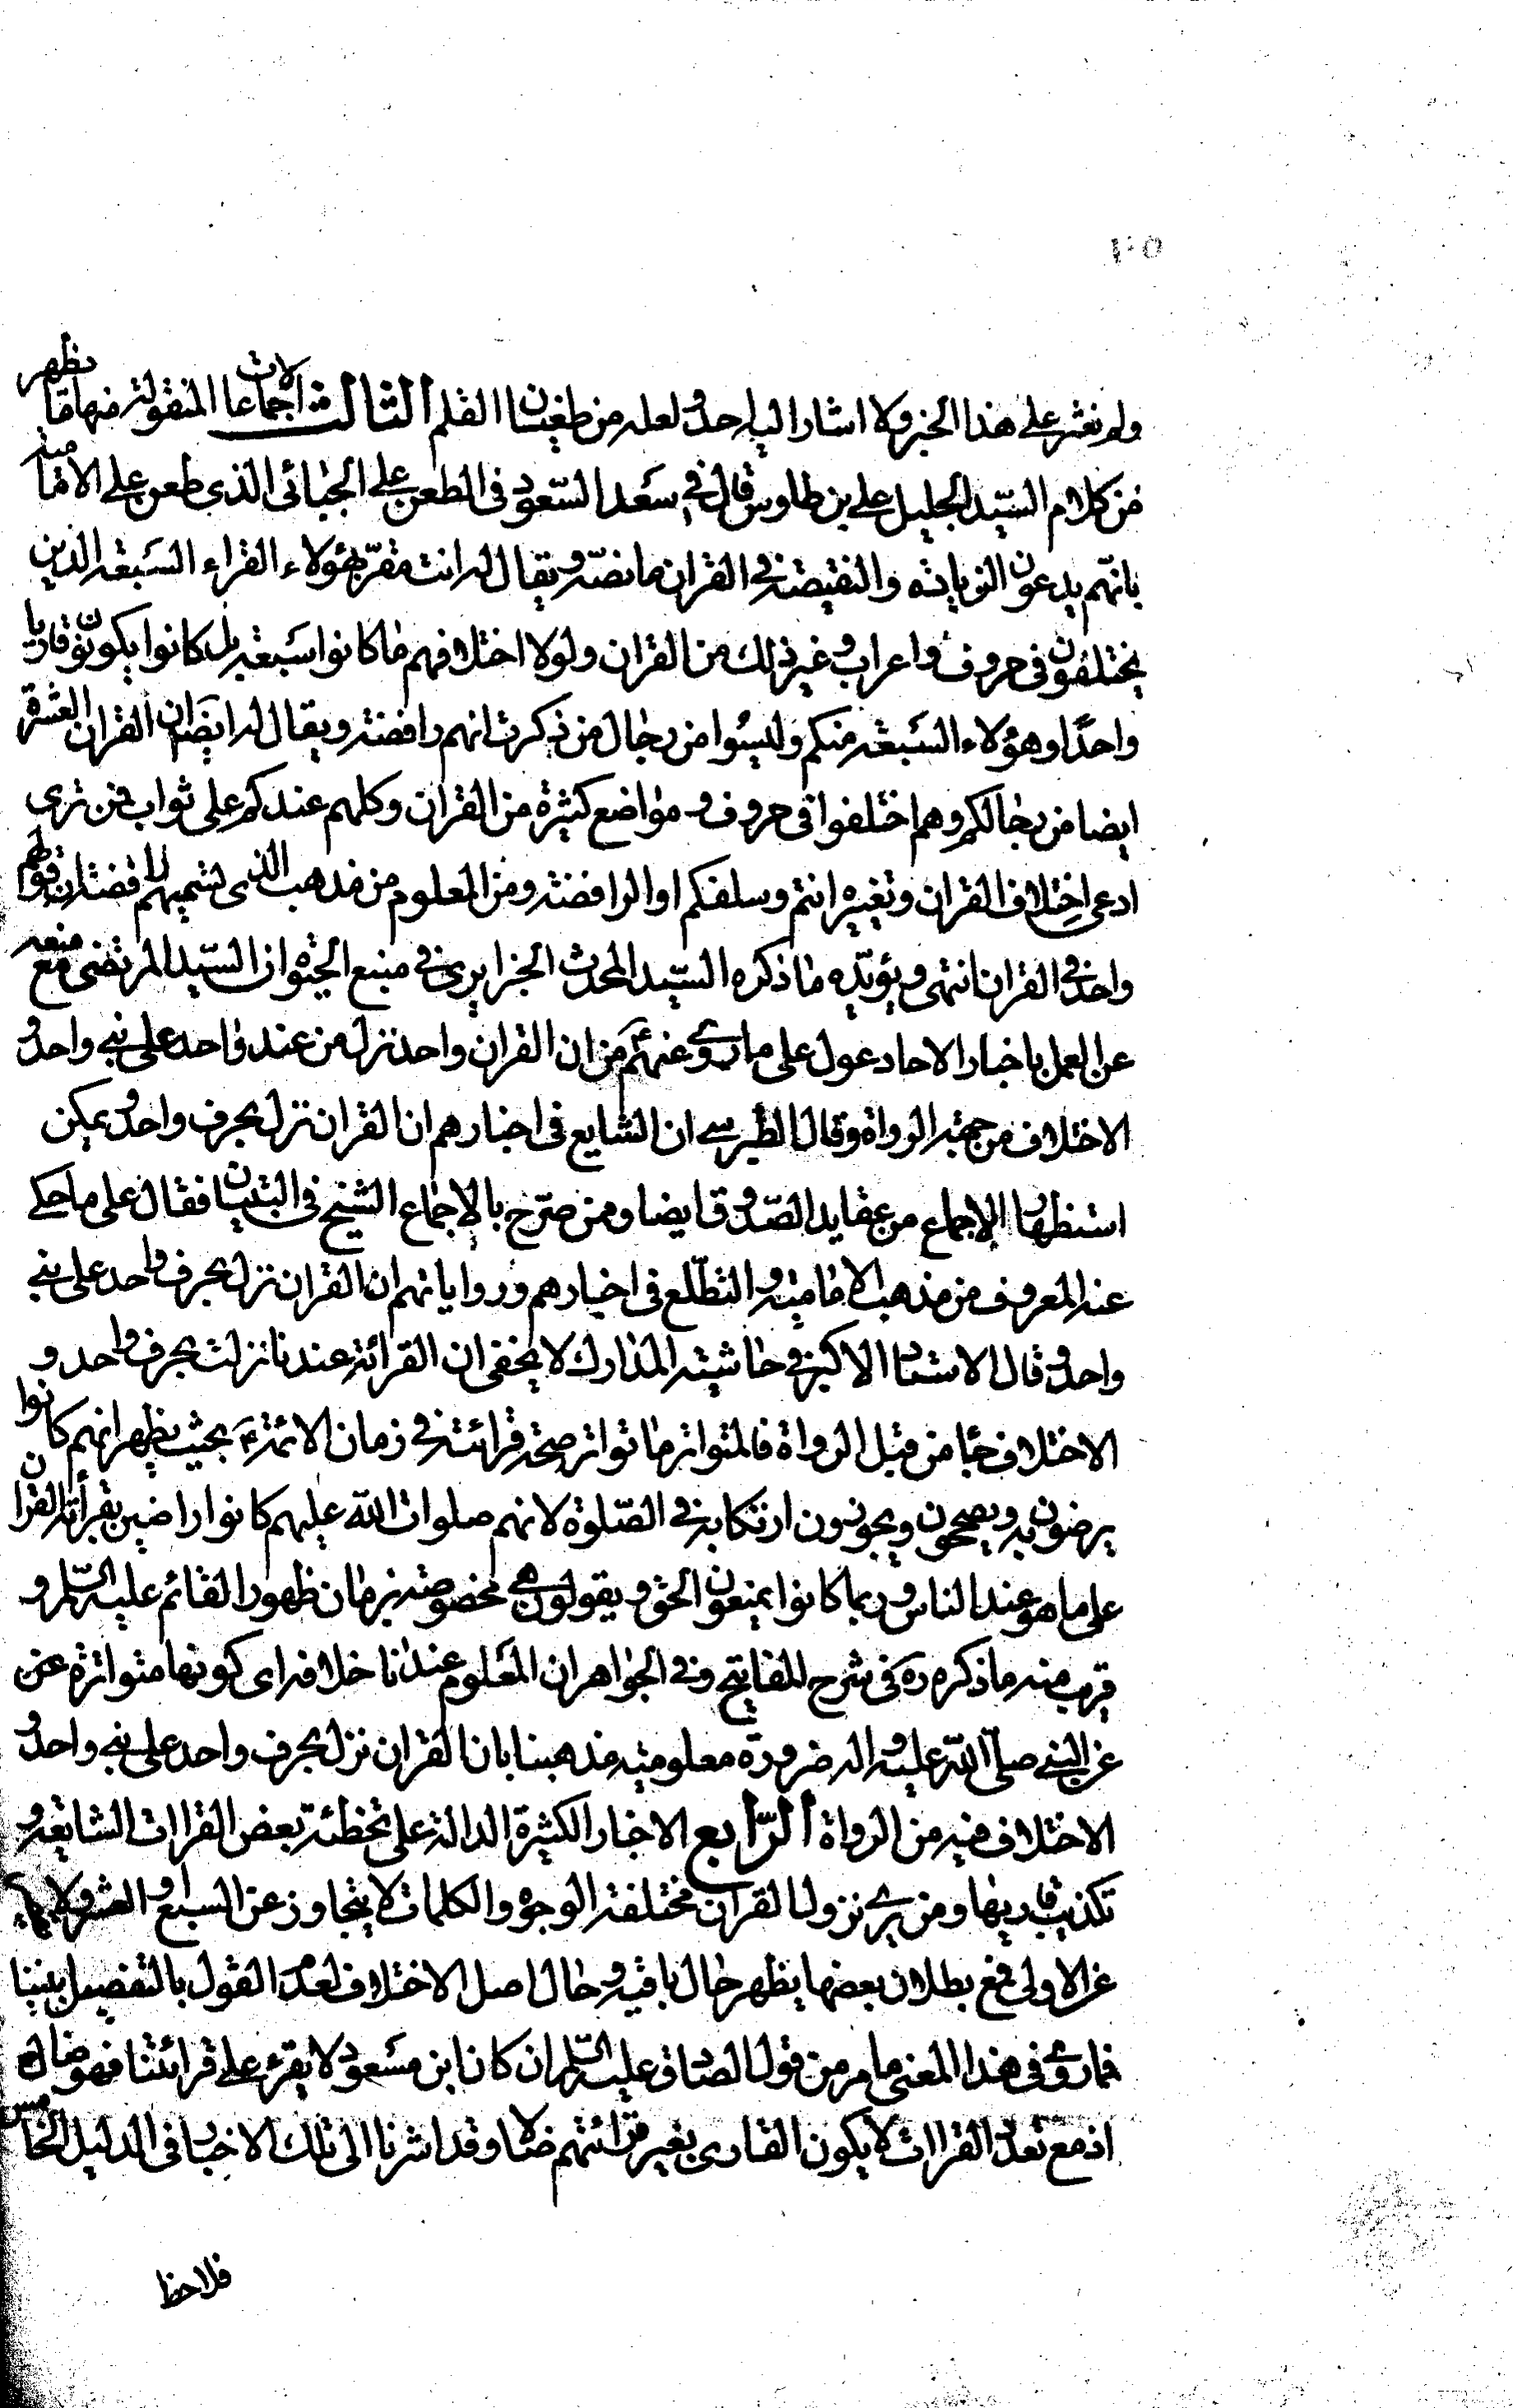 ولم نعثر على هذا الخبر ولا اشار اليه احد ولعله من طغيان القلم الثالث الاجماعات المنقولة منها ما يظهر
من كلام السيد الجليل علي بن طاوس قال في سعد السعود فى الطعن على الجبائى الذى طعن على الاماميه
بانهم يدعون الزيادة والنقيصة فى القران ما نصه ويقال له انت مقر بهؤلاء القراء السبعة الذين
يختلفون فى حروف واعراب وغير ذلك من القران ولولا اختلافهم ما كانوا سبعة بل كانوا يكونون قاريا
واحدًا وهؤلاء السبعة منكم وليسوا من رجال من ذكرت انهم رافضة ويقال له ايضا ان القران العشرة
ايضا من رجالكم وهم اختلفوا فى حروف ومواضع كثيرة من القران وكلهم عندكم على ثواب فمن ترى
ادعى اختلاف القران وتغيره انتم وسلفكم او الرافضة ومن المعلوم من مذهب الذى تسميهم الرافضة ان قولهم
واحد فى القران انتهى ويؤيده ما ذكره السيد المحدث الجزايرى فى منبع الحيوة ان السيد المرتضى مع منعه
عن العمل باخبار الاحاد عول على ما روى عنهم ع من ان القران واحد نزل من عند واحد على نبى واحد و
الاختلاف من جهة الرواة وقال الطبرسى ان الشايع فى اخبارهم ان القران نزل بحرف واحد ويمكن
استظهار الاجماع من عقايد الصدوق ايضا وممن صرح بالاجماع الشيخ فى التبيان فقال على ما حكى
عنه المعروف من مذهب الامامية والتطلع فى اخبارهم ورواياتهم ان القران نزل بحرف واحد على نبى
واحد وقال الاستاد الاكبر فى حاشية المدارك لا يخفى ان القرائة عندنا نزلت بحرف واحد و
الاختلاف جاء من قبل الرواة فالمتواتر ما تواتر صحة قرائته فى زمان الائمة ع بحيث يظهر انهم كانوا
يرضون به ويصححون ويجوزون ارتكابه فى الصلوة لانهم صلوات الله عليهم كانوا راضين بقرأة القران
على ما هو عند الناس وربما كانوا يمنعون الحق ويقولون هى مخصوصة بزمان ظهور القائم عليه السلم و
قريب منه ما ذكره ره فى شرح المفاتيح وفى الجواهر ان المعلوم عندنا خلافه اى كونها متواترة عن
عن النبى صلى الله عليه واله ضرورة معلومية مذهبنا بان القران نزل بحرف واحد على نبى واحد و
الاختلاف فيه من الرواة الرابع الاخبار الكثيرة الدالة على تخطئة بعض القراات الشايعة و
تكذيب قاريها ومن يرى نزول القران مختلفة الوجوه والكلمات لا يتجاوز عن السبع او العشر ولا
عن الاولى فمع بطلان بعضها يظهر حال باقيه وحال اصل الاختلاف لعدم القول بالتفصيل بيننا
فما روى فى هذا المعنى ما مر من قول الصادق عليه السلم ان كان ابن مسعود لا يقرء على قرائتنا فهو ضال
اذ مع تعدد القراات لا يكون القارى بغير قرائتهم ضالا وقد اشرنا الى تلك الاخبار فى الدليل الخامس
فلاحظ